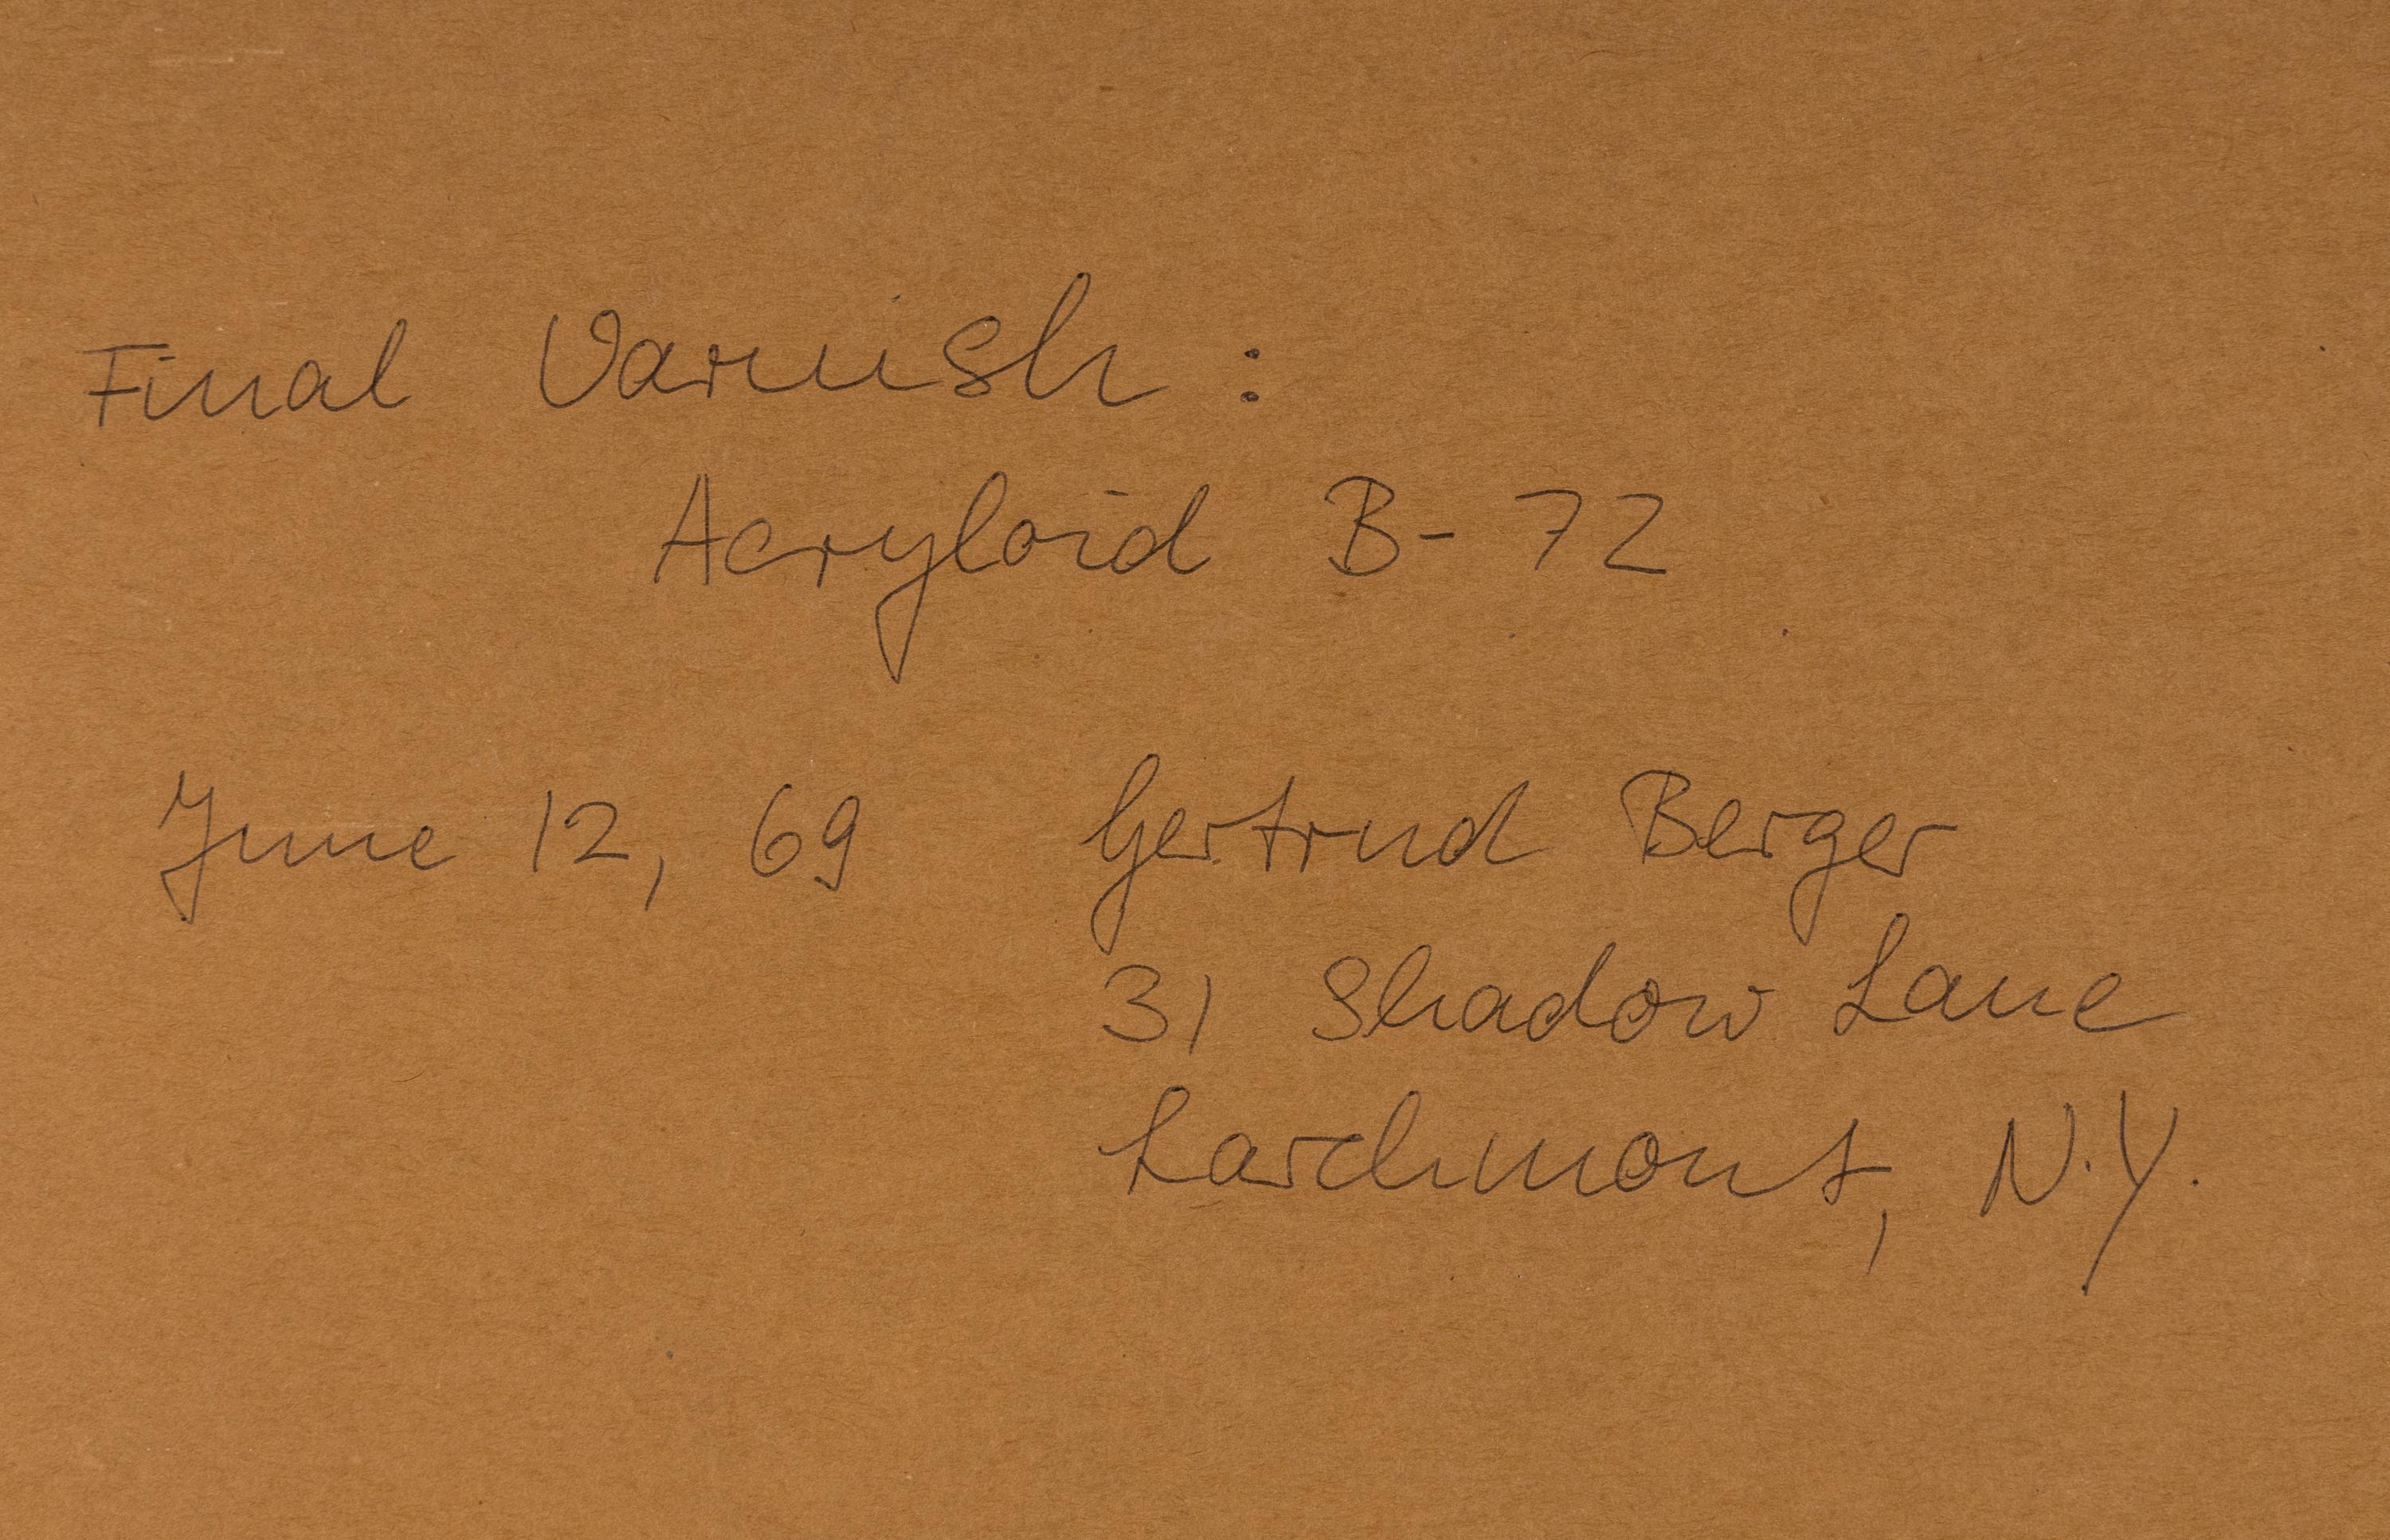 Final Varnish :
Acryloid B-72
June 12, 69 Gertrud Berger
31 Shadow Lane
Larchmont, N.Y.